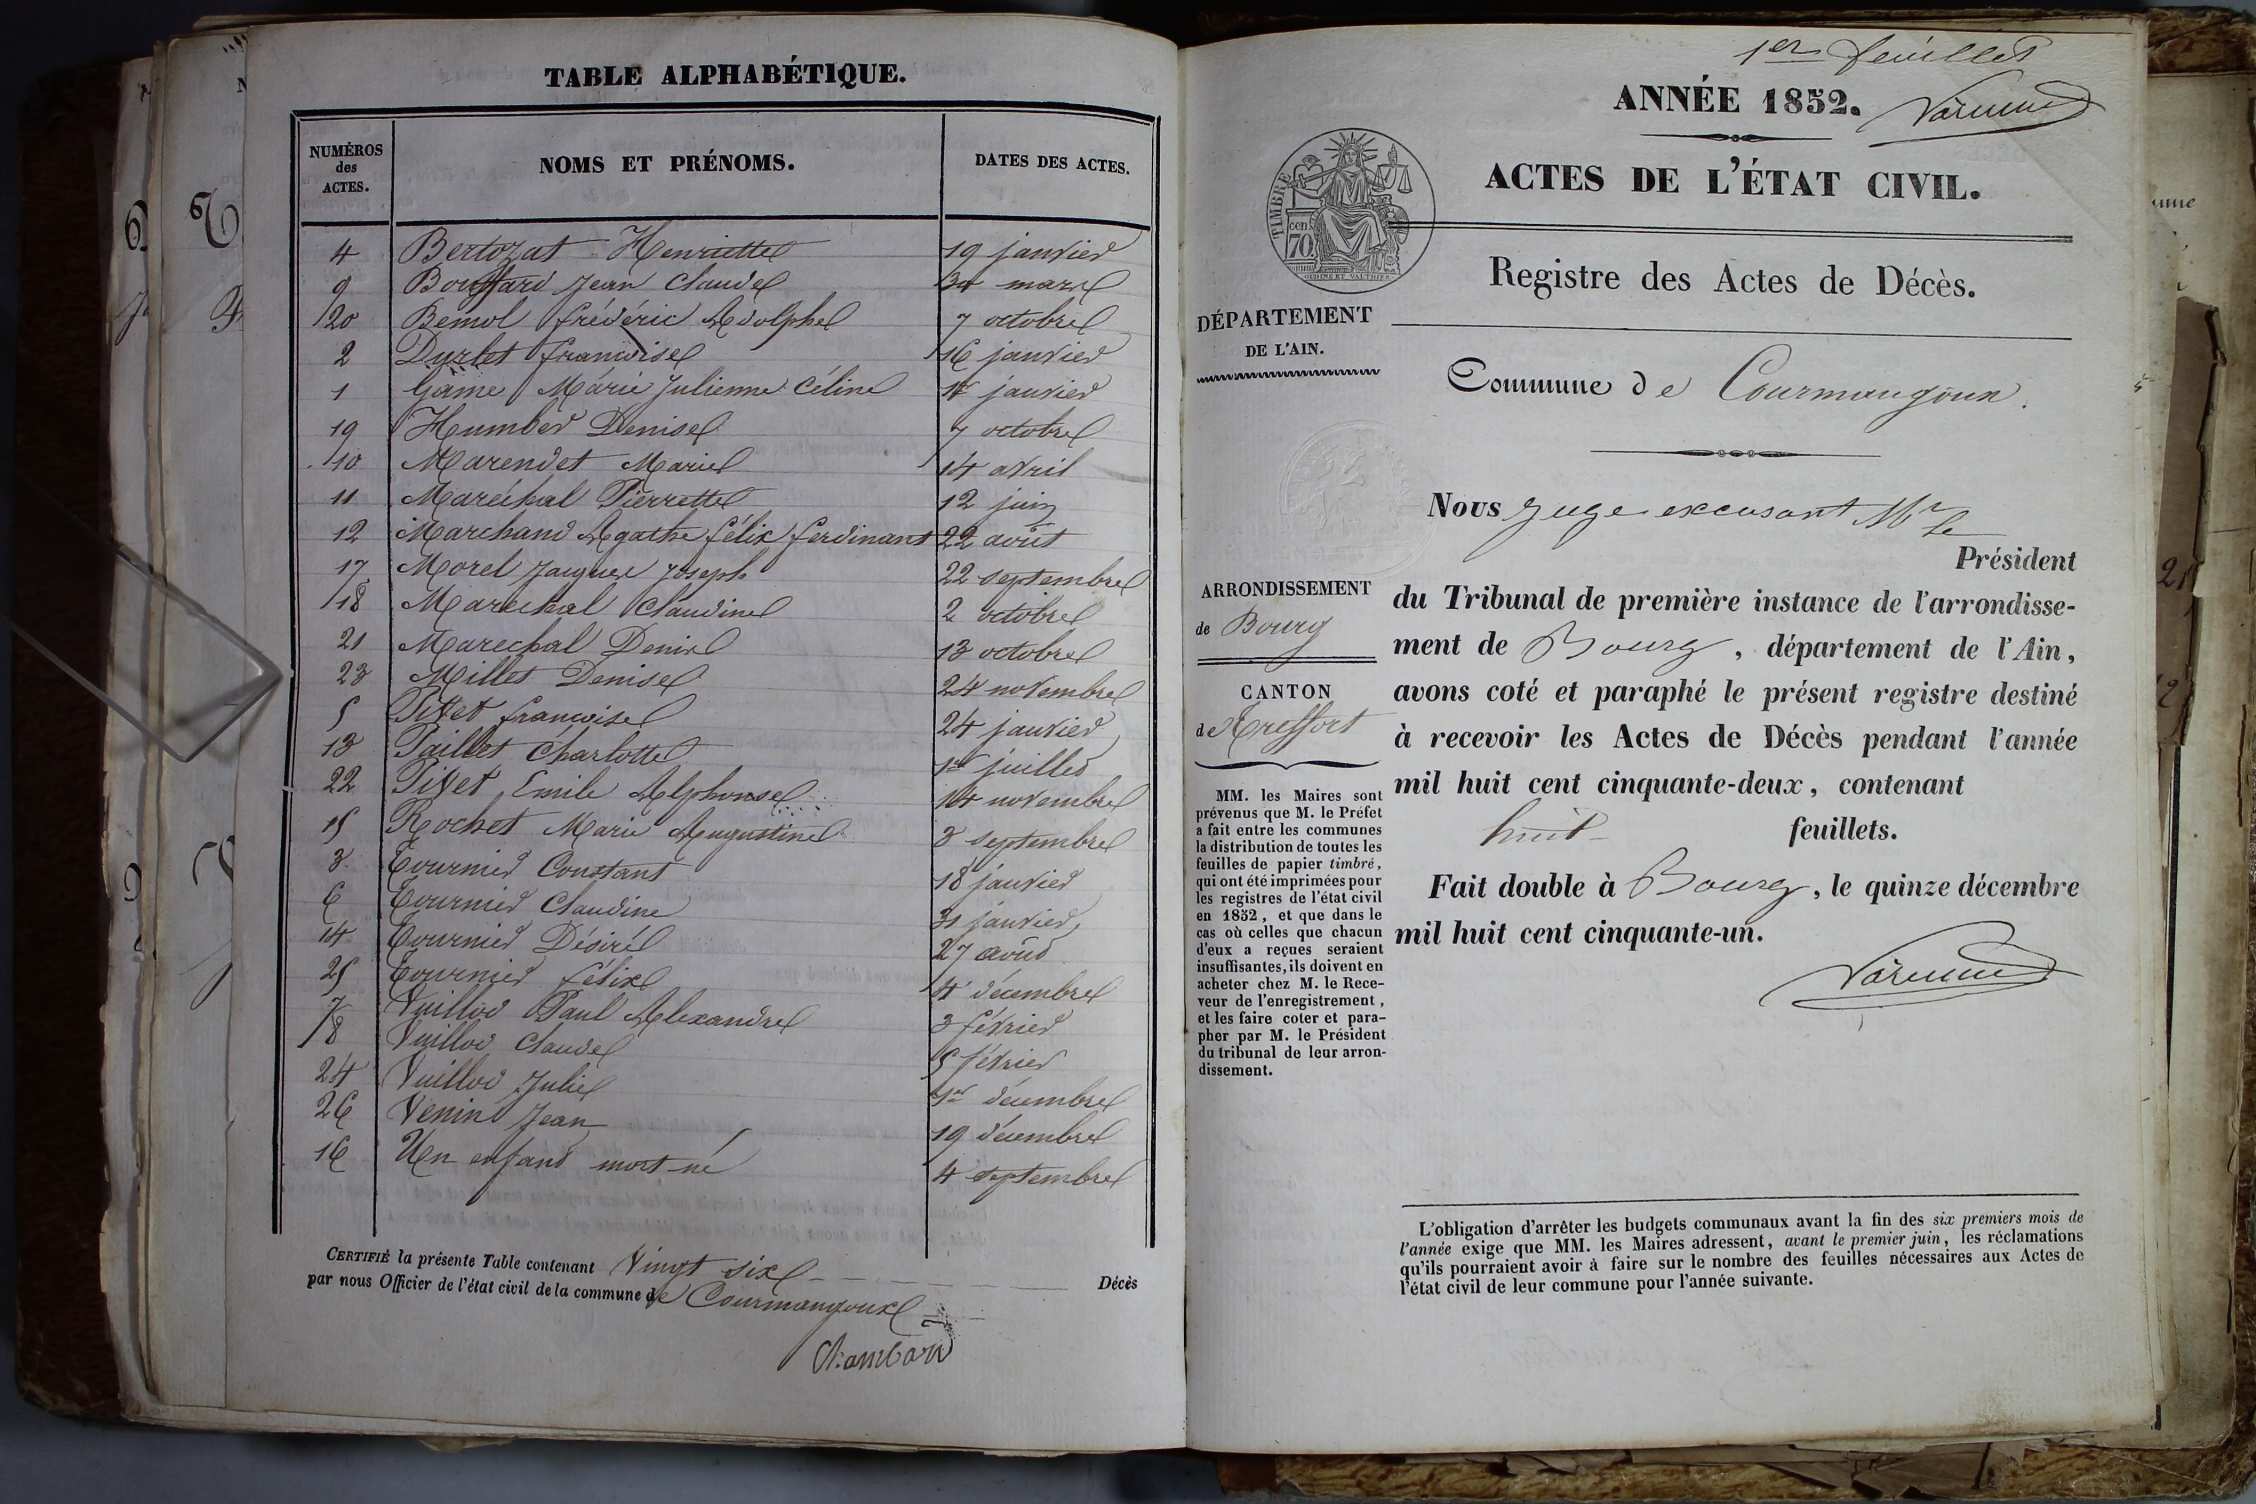 TABLE ALPHABÉTIQUE.
NUMÉROS des ACTES. NOMS ET PRÉNOMS. DATES DES ACTES.
4 Bertozat Henriette 19 janvier
9 Bouffard Jean Claude 30 mars
20 Bemol frédéric Adolphe 7 octobre
2 Durlet francoise 16 janvier
1 Game Marie Julienne Céline janvier
19 Humber Denise 7 octobre
10 Marendet Marie 14 avril
11 Maréchal Pierrette 12 juin
12 Marchand Agathe félix ferdinant 22 août
17 Morel Jacques Joseph 22 septembre
18 Marechal Claudine 2 octobre
21 Marechal Denis 13 octobre
23 Millet Denise 24 novembre
5 Pitet francoise 24 janvier
13 Paillet Charlotte 1er juillet
22 Pitet Emile Alphonse 14 novembre
15 Rochet Marie Augustine 3 septembre
3 Tournier Constant 18 janvier
6 Tournier Claudine 31 janvier
14 Tournier Désiré 27 août
25 Tournier félix 4 décembre
7 Vuillod Paul Alexandre 3 février
8 Vuillod Claude 5 février
24 Vuillod Julie 1er décembre
26 Venin Jean 19 décembre
16 Un enfant mort-né 4 septembre
CERTIFIÉ la présente Table contenant Vingt six Décès
par nous Officier de l'état civil de la commune de Courmangoux
Chambard
1er feuillet
ANNÉE 1852.
ACTES DE L'ÉTAT CIVIL.
TIMBRE
cen. 70.
Registre des Actes de Décès.
DÉPARTEMENT
DE L'AIN.
Commune de Courmangoux.
Nous Juge excusant Mr le
Président
du Tribunal de première instance de l'arrondisse-
ment de Bourg, département de l'Ain,
avons coté et paraphé le présent registre destiné
à recevoir les Actes de Décès pendant l'année
mil huit cent cinquante-deux, contenant
huit feuillets.
Fait double à Bourg, le quinze décembre
mil huit cent cinquante-un.
ARRONDISSEMENT
de Bourg
CANTON
de Treffort
MM. les Maires sont
prévenus que M. le Préfet
a fait entre les communes
la distribution de toutes les
feuilles de papier timbré,
qui ont été imprimées pour
les registres de l'état civil
en 1852, et que dans le
cas où celles que chacun
d'eux a reçues seraient
insuffisantes, ils doivent en
acheter chez M. le Rece-
veur de l'enregistrement,
et les faire coter et para-
pher par M. le Président
du tribunal de leur arron-
dissement.
L'obligation d'arrêter les budgets communaux avant la fin des six premiers mois de
l'année exige que MM. les Maires adressent, avant le premier juin, les réclamations
qu'ils pourraient avoir à faire sur le nombre des feuilles nécessaires aux Actes de
l'état civil de leur commune pour l'année suivante.